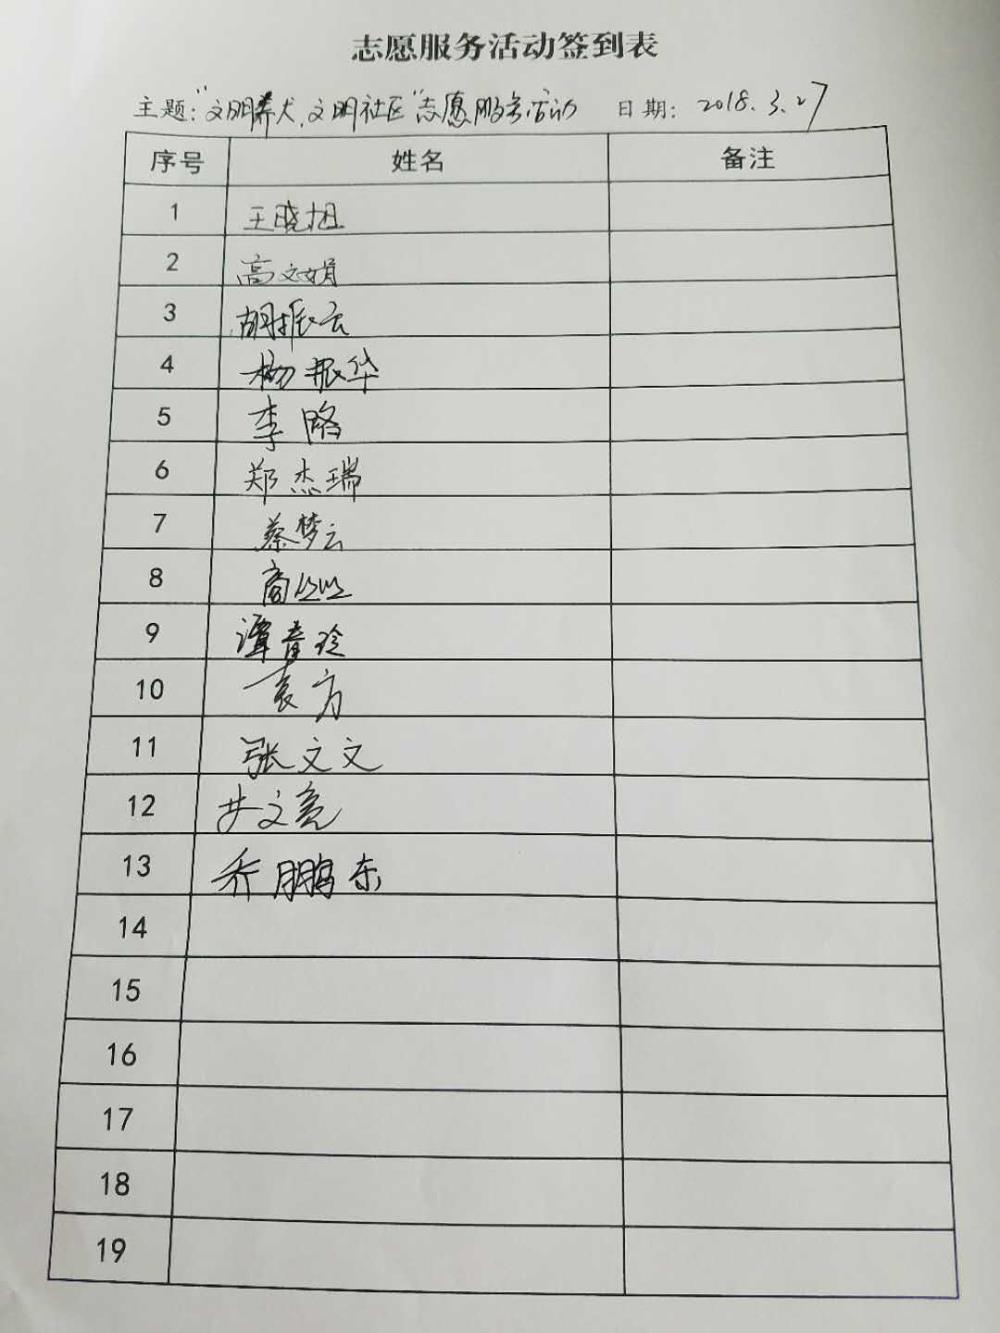 志愿服务活动签到表
主题:"文明养犬,文明社区"志愿服务活动 日期: 2018.3.27
序号 姓名 备注
1 王晓旭
2 高文娟
3 胡振云
4 杨振华
5 李
6 郑杰瑞
7 蔡梦云
8 商
9 谭青玲
10 袁方
11 张文文
12 井文亮
13 乔鹏东
14
15
16
17
18
19